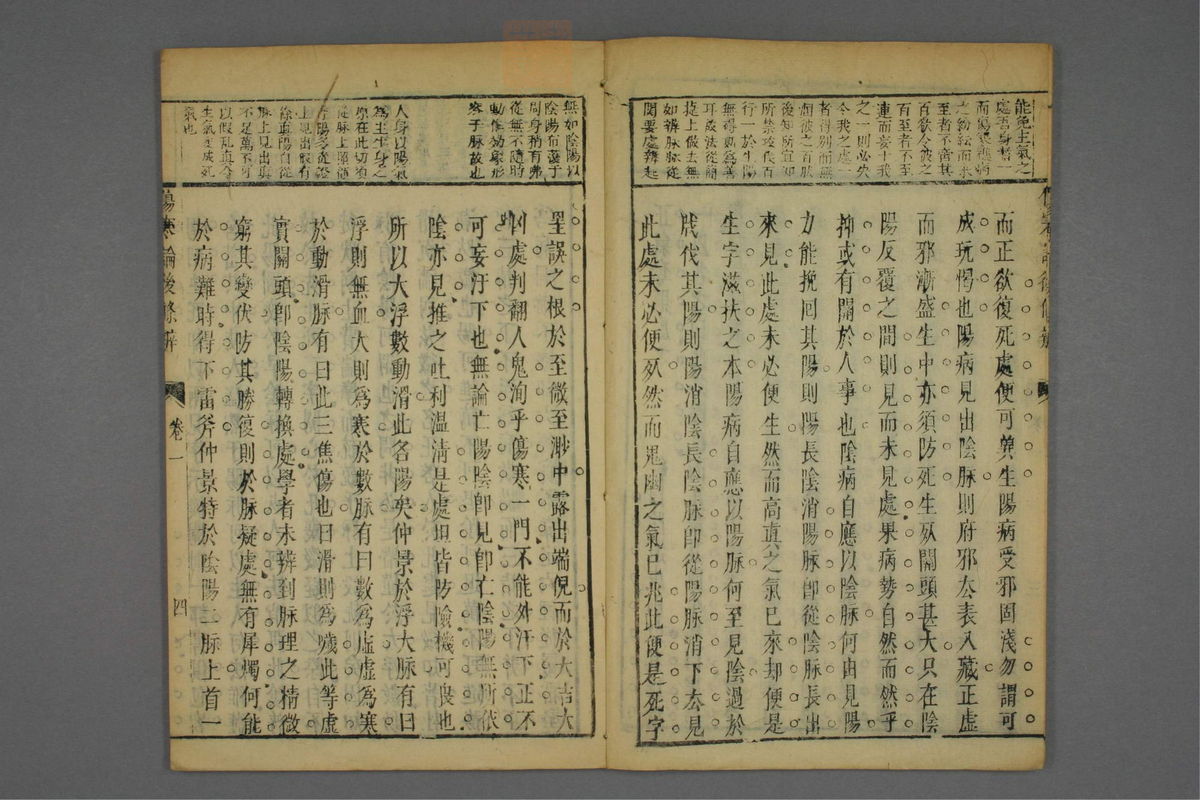 而正欲復死處便可冀生陽病受邪固淺勿謂可
成玩愒也陽病見出陰脉則府邪去表入藏正虛
而邪漸盛生中亦須防死生死關頭甚大只在陰
陽反覆之間則見而未見處果病勢自然而然乎
抑或有關於人事也陰病自應以陰脉何由見陽
力能挽回其陽則陽長陰消陽脉卽從陰脉長出
來見此處未必便生然而高眞之氣已來却便是
生字滋扶之本陽病自應以陽脉何至見陰過於
戕伐其陽則陽消陰長陰脉卽從陽脉消下去見
此處未必便死然而鬼幽之氣已兆此便是死字
能免主氣之
而傷寒雜病
之紛紜而求
至者不啻其
百欲令彼之
百至者不至
連而妄十我
之一則必先
令我之處一
者得別而無
後知所宜知
所禁攻伐百
行一於生陽
無碍點爲善
耳最法從簡
捷上做去無
如辨脉脉從
関要處辨起
無如陰陽以
陰陽布濩于
周身稍有弗
從無不隨時
動惟効象形
察于脉故也
人身以陽氣
為主生身之
原在此切須
從脉上顧懂
浮陽多從證
上見出假有
餘眞陽自從
脉上見出眞
不足萬不可
以假乱真令
生氣变成死
氣也
呈誤之根於至微至渺中露出端倪而於大吉大
凶處判翻人鬼洵乎傷寒一門不能外汗下正不
可妄汗下也無論亡陽陰卽見卽亡陰陽無所依
陰亦見推之吐利温清是處坦皆防險機可喪也
所以大浮數動滑此名陽矣仲景於浮大脉有曰
浮則無血大則爲寒於數脉有曰數爲虛虛爲寒
於動滑脉有曰此三焦傷也曰滑則爲噦此等虛
實關頭卽陰陽轉換處學者未辨到脉理之精微
窮其變伏防其勝復則於脉疑處無有犀燭何能
於病難時得下雷斧仲景特於陰陽二脉上首一
傷寒論後條辨
卷一
四